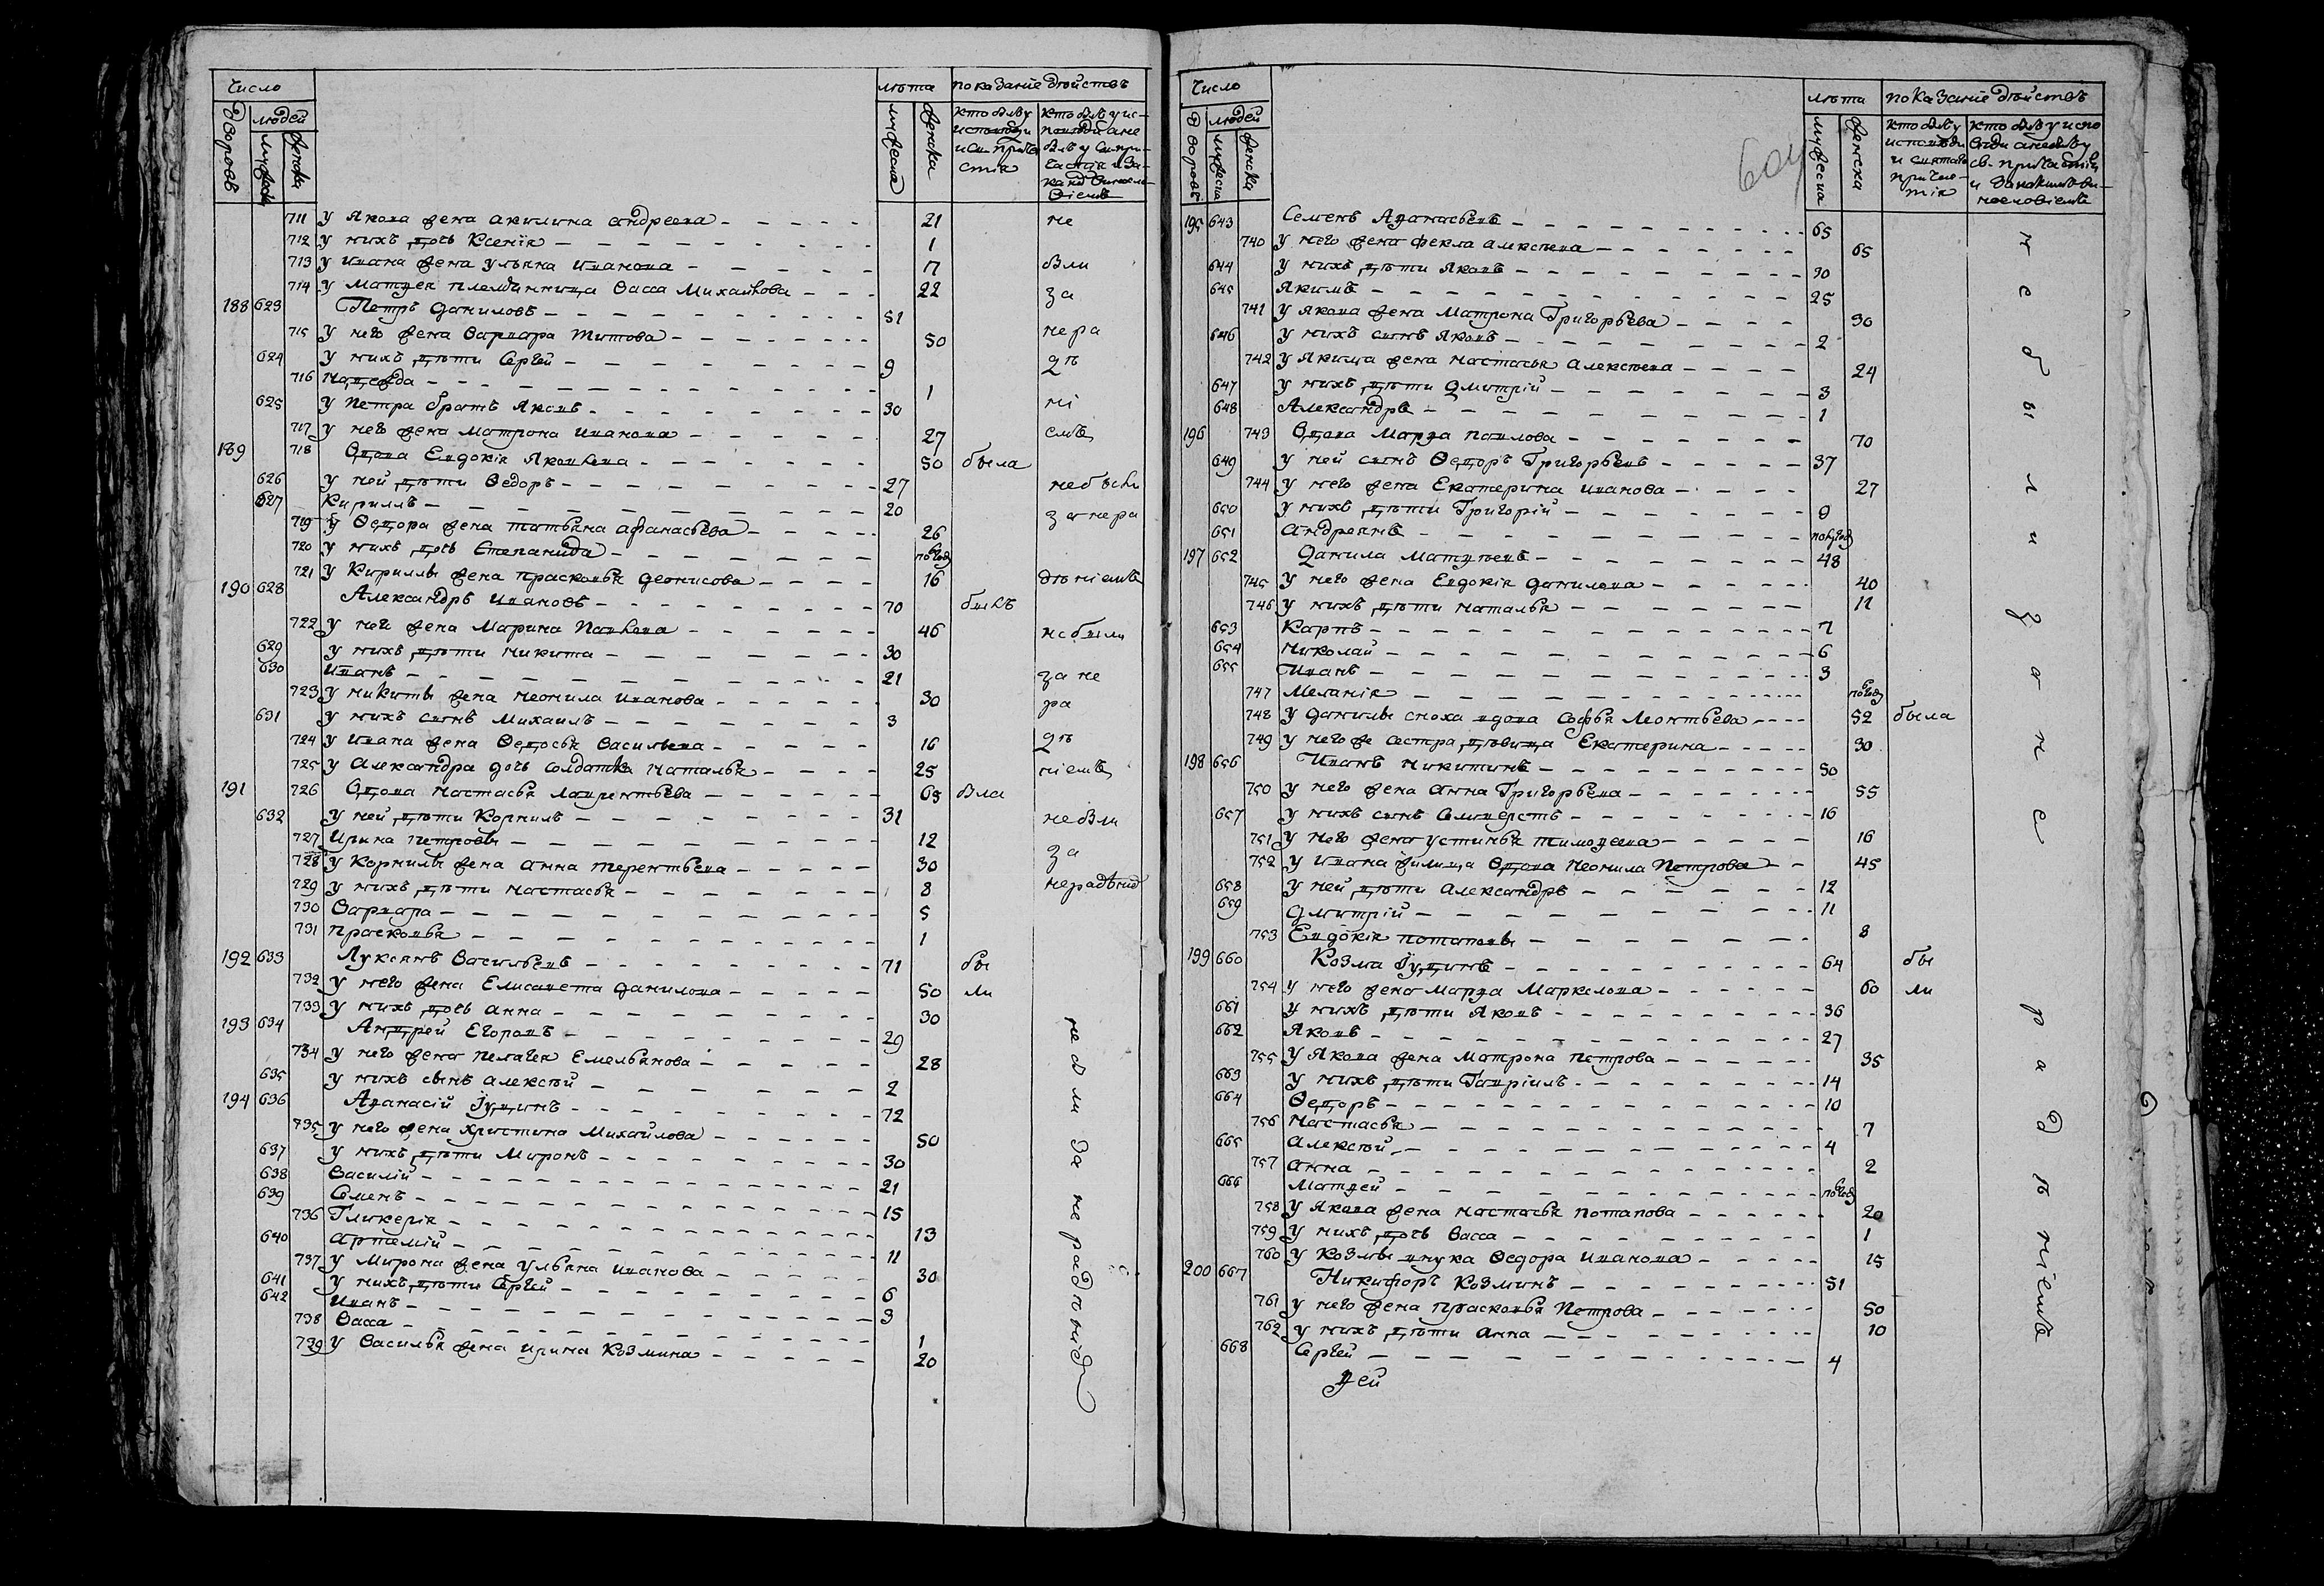 Число
лѣта показаніе дѣйствъ
Дворовъ людей
мужеска женска
мужеска женска
кто былъ у исповѣди и св. причастія
кто былъ у исповѣди а не былъ у св. причастія и за какимъ винословіемъ
711 У Якова жена Акилина Андреева 21 не
712 У нихъ дочь Ксенія 1
713 У Ивана жена Ульяна Иванова 17 были
714 У Матвея племянница Васса Михайлова 22 за
188 623 Петръ Даниловъ 51
715 У него жена Варвара Титова 50 нера
624 У нихъ дѣти Сергей 9 дѣ
716 Надежда 1
625 У Петра братъ Яковъ 30 ні
717 У него жена Матрона Иванова 27 емъ
189 718 Вдова Евдокія Яковлева 50 была
626 У ней дѣти Ѳедоръ 27 небыли
627 Кириллъ 20
719 У Ѳедора жена Татьяна Афанасьева 26 за нера
720 У нихъ дочь Степанида полгод
721 У Кириллы жена Прасковья Деонисова 16 дѣніемъ
190 628 Александръ Ивановъ 70 былъ
722 У него жена Марина Павлова 46 небыли
629 У нихъ дѣти Никита 30
630 Иванъ 21 за не
723 У Никиты жена Неонила Иванова 30 ра
631 У нихъ сынъ Михаилъ 3
724 У Ивана жена Ѳедосья Васильева 16 дѣ
725 У Александра дочь солдатка Наталья 25 ніемъ
191 726 Вдова Настасья Лаврентьева 65 была
632 У ней дѣти Корнилъ 31 небыли
727 Ирина Петровы 12 за
728 У Корнилы жена Анна Терентьева 30
729 У нихъ дѣти Настасья 8 нерадѣніе
730 Варвара 5
731 Прасковья 1
192 633 Лукіянъ Васильевъ 71 бы
732 У него жена Елисавета Данилова 50 ли
733 У нихъ дочь Анна 30
193 634 Андрей Егоровъ 29
734 У него жена Пелагея Емельянова 28
635 У нихъ сынъ Алексѣй 2
194 636 Афанасій Іудинъ 72
735 У него жена Христина Михайлова 50
637 У нихъ дѣти Миронъ 30
638 Василій 21
639 Семенъ 15
736 Гликерія 13
640 Артемій 11
737 У Мирона жена Ульяна Иванова 30
641 У нихъ дѣти Сергей 6
642 Иванъ 3
738 Васса 1
739 У Василья жена Ирина Козмина 20
не были за нерадѣніе
Число
лѣта показаніе дѣйствъ
Дворовъ людей
мужеска женска
мужеска женска
кто былъ у исповѣди и святаго причастія
кто былъ у исповѣди а не былъ у св. причастія и за какимъ винословіемъ
195 643 Семенъ Афанасьевъ 65
740 У него жена Фекла Алексѣева 65
644 У нихъ дѣти Яковъ 30
645 Якимъ 25
741 У Якова жена Матрона Григорьева 30
646 У нихъ сынъ Яковъ 2
742 У Якима жена Настасья Алексѣева 24
647 У нихъ дѣти Дмитрій 3
648 Александръ 1
196 743 Вдова Марфа Павлова 70
649 У ней сынъ Ѳедоръ Григорьевъ 37
744 У него жена Екатерина Иванова 27
650 У нихъ дѣти Григорій 9
651 Андреянъ полгод
197 652 Данила Матвѣевъ 48
745 У него жена Евдокія Данилова 40
746 У нихъ дѣти Наталья 11
653 Карпъ 7
654 Николай 6
655 Иванъ 3
747 Меланія полгод
748 У Данилы сноха вдова Софья Леонтьева 52 была
749 У него же сестра дѣвица Екатерина 30
198 656 Иванъ Никитинъ 50
750 У него жена Анна Григорьева 55
657 У нихъ сынъ Селиверстъ 16
751 У него жена Устинья Тимофеева 16
752 У Ивана живуща вдова Неонила Петрова 45
658 У ней дѣти Александръ 12
659 Дмитрій 11
753 Евдокія Потаповы 8
199 660 Козма Іудинъ 64 бы
754 У него жена Марфа Маркелова 60 ли
661 У нихъ дѣти Яковъ 36
662 Яковъ 27
755 У Якова жена Матрона Петрова 35
663 У нихъ дѣти Гавріилъ 14
664 Ѳедоръ 10
756 Настасья 7
665 Алексѣй 4
757 Анна 2
666 Матфей полгод
758 У Якова жена Настасья Потапова 20
759 У нихъ дочь Васса 1
760 У Козмы внука Ѳедора Иванова 15
200 667 Никифоръ Козминъ 51
761 У него жена Прасковья Петрова 50
762 У нихъ дѣти Анна 10
668 Сергей 4
не были за не радѣніемъ
рей